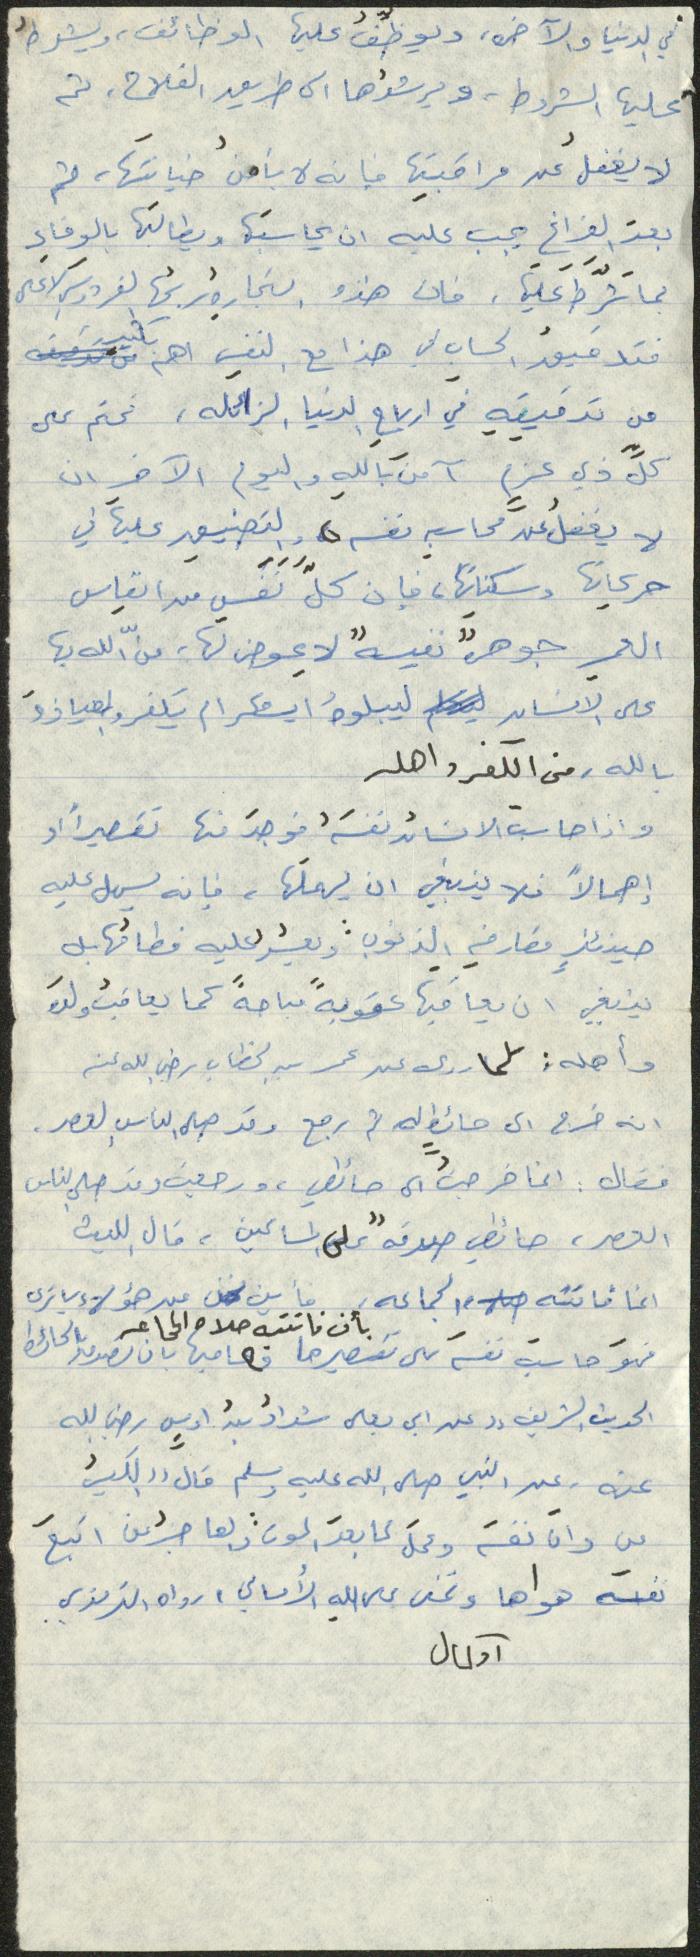 في الدنيا والآخرة، ويوظّفُ عليها الوظائف، ويشرطُ
عليها الشروط، ويرشدُها الى طريق الفلاح، ثم
لا يغفلُ عن مراقبتِها فإنه لا يأمنُ خيانتَها، ثم
بعدَ الفراغِ يجب عليه ان يحاسبَها ويطالبَها بالوفاءِ
بما شرَّطَ عليها، فان هذه التجارةَ ربحُها الفردوس الاعلى
فتدقيقُ الحساب في هذا مع النفس اهم بكثير
من تدقيقِهِ في ارباحِ الدنيا الزائله، فحتم على
كلِّ ذي عزمٍ آمنَ باللهِ واليوم الآخر ان
لا يغفلَ عن محاسبةِ نفسه والتضييق عليها في
حركاتِها وسكناتِها، فإن كلَّ نَفَسٍ من انفاس
العمر جوهرةٌ نفيسةٌ لا عِوض لها، منَّ الله بها
على الانسان ليبلوهُ ايشكر ام يكفر والعياذُ
بالله، من الكفر واهله
واذا حاسبَ الانسانُ نفسَهُ فوجدَ منها تقصيراً او
إهمالاً فلا ينبغي ان يهملَها، فإنه يسهل عليه
حينئذٍ مقارفةِ الذنوب ويعسُر عليه فطامُها بل
ينبغي ان يعاقبَها عقوبةً مباحةً كما يعاقبُ ولدَهُ
وأهله: كما روى عن عمر بن الخطاب رضي الله عنه
انه خرج الى حائطٍ له ثم رجع وقد صلى الناس العصر.
فقال: انما خرجتُ الى حائطي، ورجعت وقد صلى الناس
العصر، حائطي صدقةٌ على المساكين، قال الليث
انما فاتته الجماعه، فأين نحن من هؤلاء يا ترى
بأن فاتته صلاة الجماعه
فهوَ حاسبَ نفسَهُ على تقصيرها فعاقبها بأن تصدقَ بالحائط
الحديث الشريف (( عن ابي يعلى شدادُ بنُ اوسٍ رضي الله
عنه، عن النبي صلى الله عليه وسلم قالَ (( الكيّسُ
من دانَ نفسَه وعملَ لما بعدَ الموت والعاجزُ من اتبعَ
نفسَه هواها وتمنى على اللهِ الأماني، رواه الترمذي.